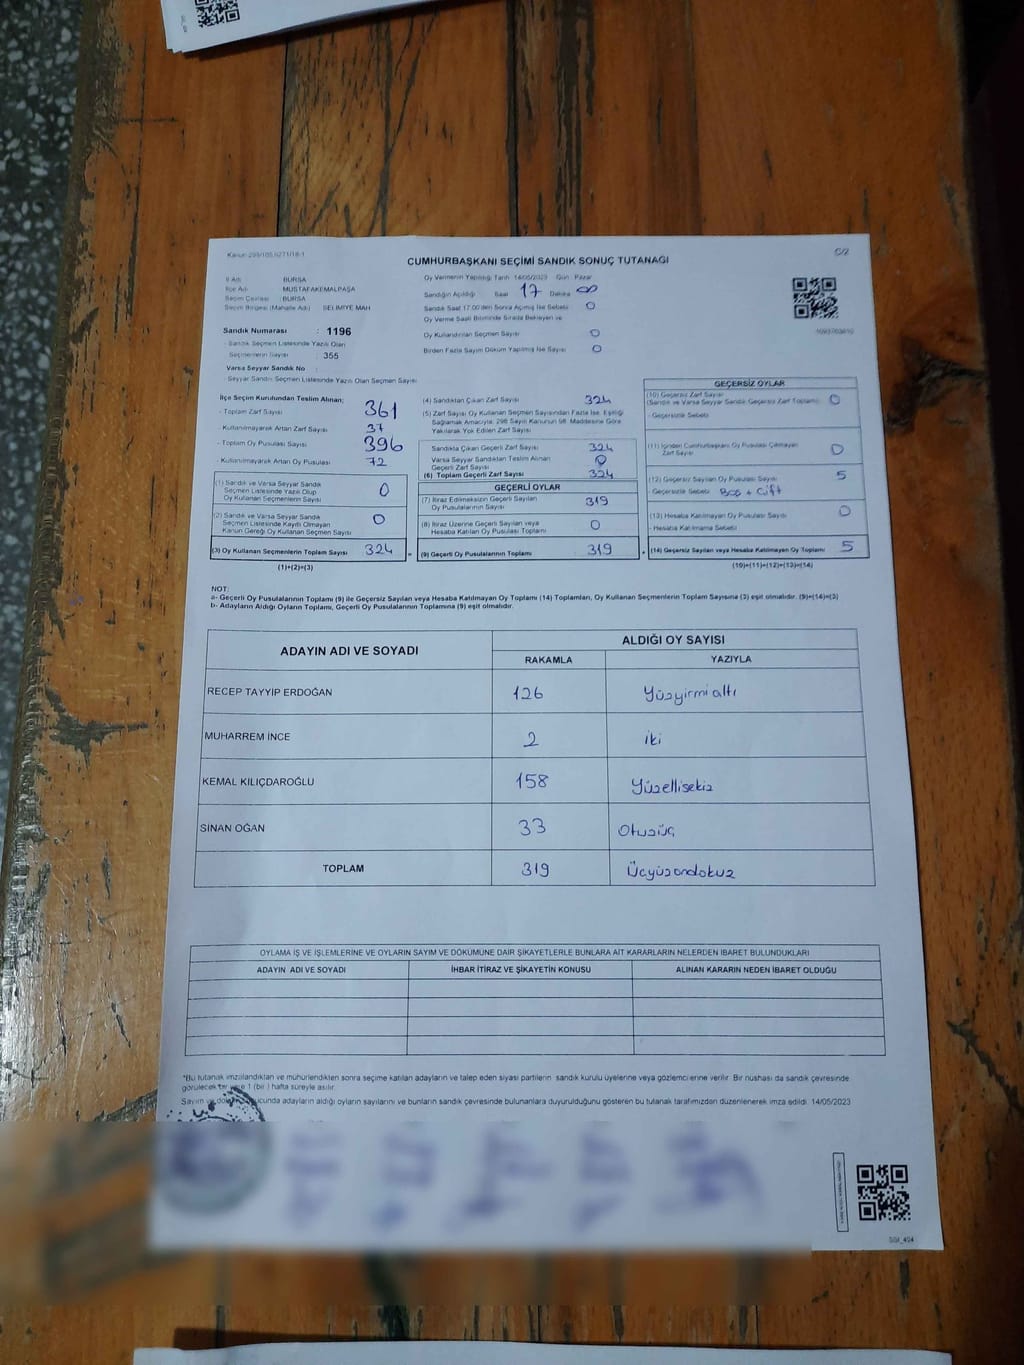 CUMHURBAŞKANI SEÇİMİ SANDIK SONUÇ TUTANAĞI
C/2
İl Adı : BURSA
İlçe Adı : MUSTAFAKEMALPAŞA
Seçim Çevresi : BURSA
Seçim Bölgesi (Mahalle Adı) : SELİMİYE MAH
Sandık Numarası : 1196
- Sandık Seçmen Listesinde Yazılı Olan
Seçmenlerin Sayısı : 355
Varsa Seyyar Sandık No :
- Seyyar Sandık Seçmen Listesinde Yazılı Olan Seçmen Sayısı
Oy Vermenin Yapıldığı Tarih 14/05/2023 Gün Pazar
Sandığın Açıldığı : Saat 17 Dakika 00
Sandık Saat 17.00'den Sonra Açılmış İse Sebebi 0
Oy Verme Saati Bitiminde Sırada Bekleyen ve
Oy Kullandırılan Seçmen Sayısı 0
Birden Fazla Sayım Döküm Yapılmış İse Sayısı 0
İlçe Seçim Kurulundan Teslim Alınan;
- Toplam Zarf Sayısı 361
- Kullanılmayarak Artan Zarf Sayısı 37
- Toplam Oy Pusulası Sayısı 396
- Kullanılmayarak Artan Oy Pusulası 72
(1) Sandık ve Varsa Seyyar Sandık
Seçmen Listesinde Yazılı Olup
Oy Kullanan Seçmenlerin Sayısı 0
(2) Sandık ve Varsa Seyyar Sandık
Seçmen Listesinde Kayıtlı Olmayan
Kanun Gereği Oy Kullanan Seçmen Sayısı 0
(3) Oy Kullanan Seçmenlerin Toplam Sayısı 324
(1)+(2)=(3)
(4) Sandıktan Çıkan Zarf Sayısı 324
(5) Zarf Sayısı Oy Kullanan Seçmen Sayısından Fazla İse, Eşitliği
Sağlamak Amacıyla; 298 Sayılı Kanunun 98. Maddesine Göre
Yakılarak Yok Edilen Zarf Sayısı
Sandıkta Çıkan Geçerli Zarf Sayısı 324
Varsa Seyyar Sandıktan Teslim Alınan
Geçerli Zarf Sayısı 0
(6) Toplam Geçerli Zarf Sayısı 324
GEÇERLİ OYLAR
(7) İtiraz Edilmeksizin Geçerli Sayılan
Oy Pusulası Sayısı 319
(8) İtiraz Üzerine Geçerli Sayılan veya
Hesaba Katılan Oy Pusulası Toplamı 0
= (9) Geçerli Oy Pusulalarının Toplamı 319
GEÇERSİZ OYLAR
(10) Geçersiz Zarf Sayısı
(Sandık ve Varsa Seyyar Sandık Geçersiz Zarf Toplamı) 0
- Geçersizlik Sebebi
(11) İçinden Cumhurbaşkanı Oy Pusulası Çıkmayan
Zarf Sayısı 0
(12) Geçersiz Sayılan Oy Pusulası Sayısı 5
- Geçersizlik Sebebi Boş + Çift
(13) Hesaba Katılmayan Oy Pusulası Sayısı 0
- Hesaba Katılmama Sebebi
+ (14) Geçersiz Sayılan veya Hesaba Katılmayan Oy Toplamı 5
(10)+(11)+(12)+(13)=(14)
NOT:
a- Geçerli Oy Pusulalarının Toplamı (9) ile Geçersiz Sayılan veya Hesaba Katılmayan Oy Toplamı (14) Toplamları, Oy Kullanan Seçmenlerin Toplam Sayısına (3) eşit olmalıdır. (9)+(14)=(3)
b- Adayların Aldığı Oyların Toplamı, Geçerli Oy Pusulalarının Toplamına (9) eşit olmalıdır.
ADAYIN ADI VE SOYADI
ALDIĞI OY SAYISI
RAKAMLA YAZIYLA
RECEP TAYYİP ERDOĞAN 126 Yüzyirmialtı
MUHARREM İNCE 2 iki
KEMAL KILIÇDAROĞLU 158 Yüzellisekiz
SİNAN OĞAN 33 Otuzüç
TOPLAM 319 Üçyüzondokuz
OYLAMA İŞ VE İŞLEMLERİNE VE OYLARIN SAYIM VE DÖKÜMÜNE DAİR ŞİKAYETLERLE BUNLARA AİT KARARLARIN NELERDEN İBARET BULUNDUKLARI
ADAYIN ADI VE SOYADI İHBAR İTİRAZ VE ŞİKAYETİN KONUSU ALINAN KARARIN NEDEN İBARET OLDUĞU
*Bu tutanak imzalandıktan ve mühürlendikten sonra seçime katılan adayların ve talep eden siyasi partilerin sandık kurulu üyelerine veya gözlemcilerine verilir. Bir nüshası da sandık çevresinde
görülecek bir yere 1 (bir) hafta süreyle asılır.
Sayım ve adayların aldığı oyların sayılarını ve bunların sandık çevresinde bulunanlara duyurulduğunu gösteren bu tutanak tarafımızdan düzenlenerek imza edildi. 14/05/2023